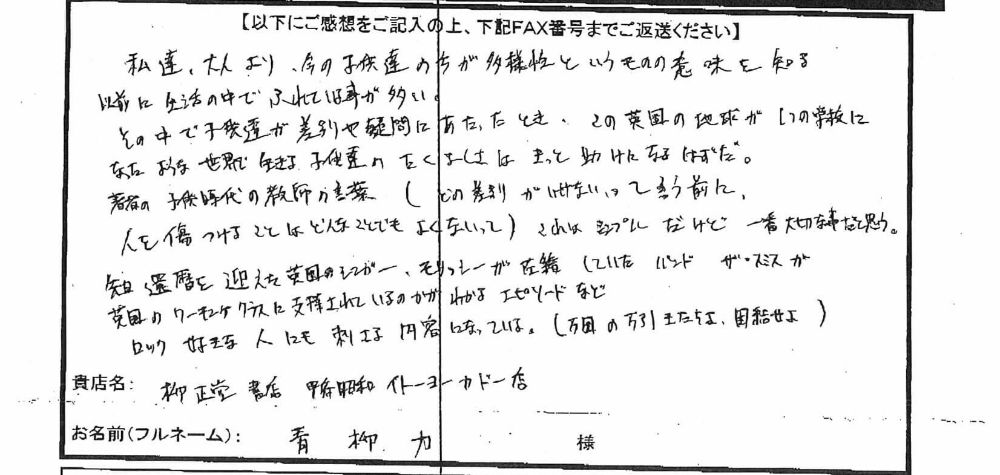 【以下にご感想をご記入の上、下記FAX番号までご返送ください】
私達、大人より、今の子供達のうちが多様性というものの意味を知る
以前に生活の中でふれている事が多い。
その中で子供達が差別や疑問にあたったとき、この英国の地球が1つの学校に
なったような世界で生きる子供達のたくましさはきっと助けになるはずだ。
著者の子供時代の教師の言葉(どの差別がいけないって言う前に、
人を傷つけることはどんなことでもよくないって)これはシンプルだけど一番大切な事だと思う。
先日還暦を迎えた英国のシンガー、モリッシーが在籍していたバンド ザ・スミスが
英国のワーキングクラスに支持されているのかがわかるエピソードなど
ロック好きな人にも刺さる内容になっている。(万国の万引きたちよ、団結せよ)
貴店名: 柳正堂書店 甲府昭和イトーヨーカドー店
お名前(フルネーム): 青柳 力 様